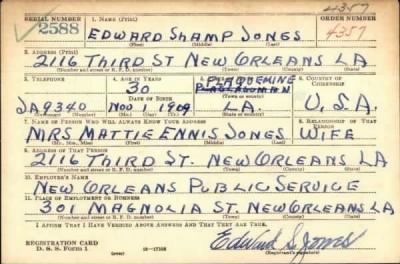 4357
SERIAL NUMBER 1. NAME (Print) ORDER NUMBER
2588 EDWARD SHAMP JONES 4357
(First) (Middle) (Last)
2. ADDRESS (Print)
2116 THIRD ST NEW ORLEANS LA
(Number and street or R. F. D. number) (Town) (County) (State)
3. TELEPHONE 4. AGE IN YEARS 5. PLACE OF BIRTH 6. COUNTRY OF CITIZENSHIP
30 PLAQUEMINE
DATE OF BIRTH (Town or county)
JA9340 NOV 1 1909 LA. U.S.A.
(Mo.) (Day) (Yr.) (State or country)
7. NAME OF PERSON WHO WILL ALWAYS KNOW YOUR ADDRESS 8. RELATIONSHIP OF THAT PERSON
MRS MATTIE ENNIS JONES WIFE
(Mr., Mrs., Miss) (First) (Middle) (Last)
9. ADDRESS OF THAT PERSON
2116 THIRD ST. NEW ORLEANS LA
(Number and street or R. F. D. number) (Town) (County) (State)
10. EMPLOYER'S NAME
NEW ORLEANS PUBLIC SERVICE
11. PLACE OF EMPLOYMENT OR BUSINESS
301 MAGNOLIA ST. NEW ORLEANS LA
(Number and street or R. F. D. number) (Town) (County) (State)
I AFFIRM THAT I HAVE VERIFIED ABOVE ANSWERS AND THAT THEY ARE TRUE.
REGISTRATION CARD
D. S. S. Form 1 (over) Edward S. Jones
(Registrant's signature)